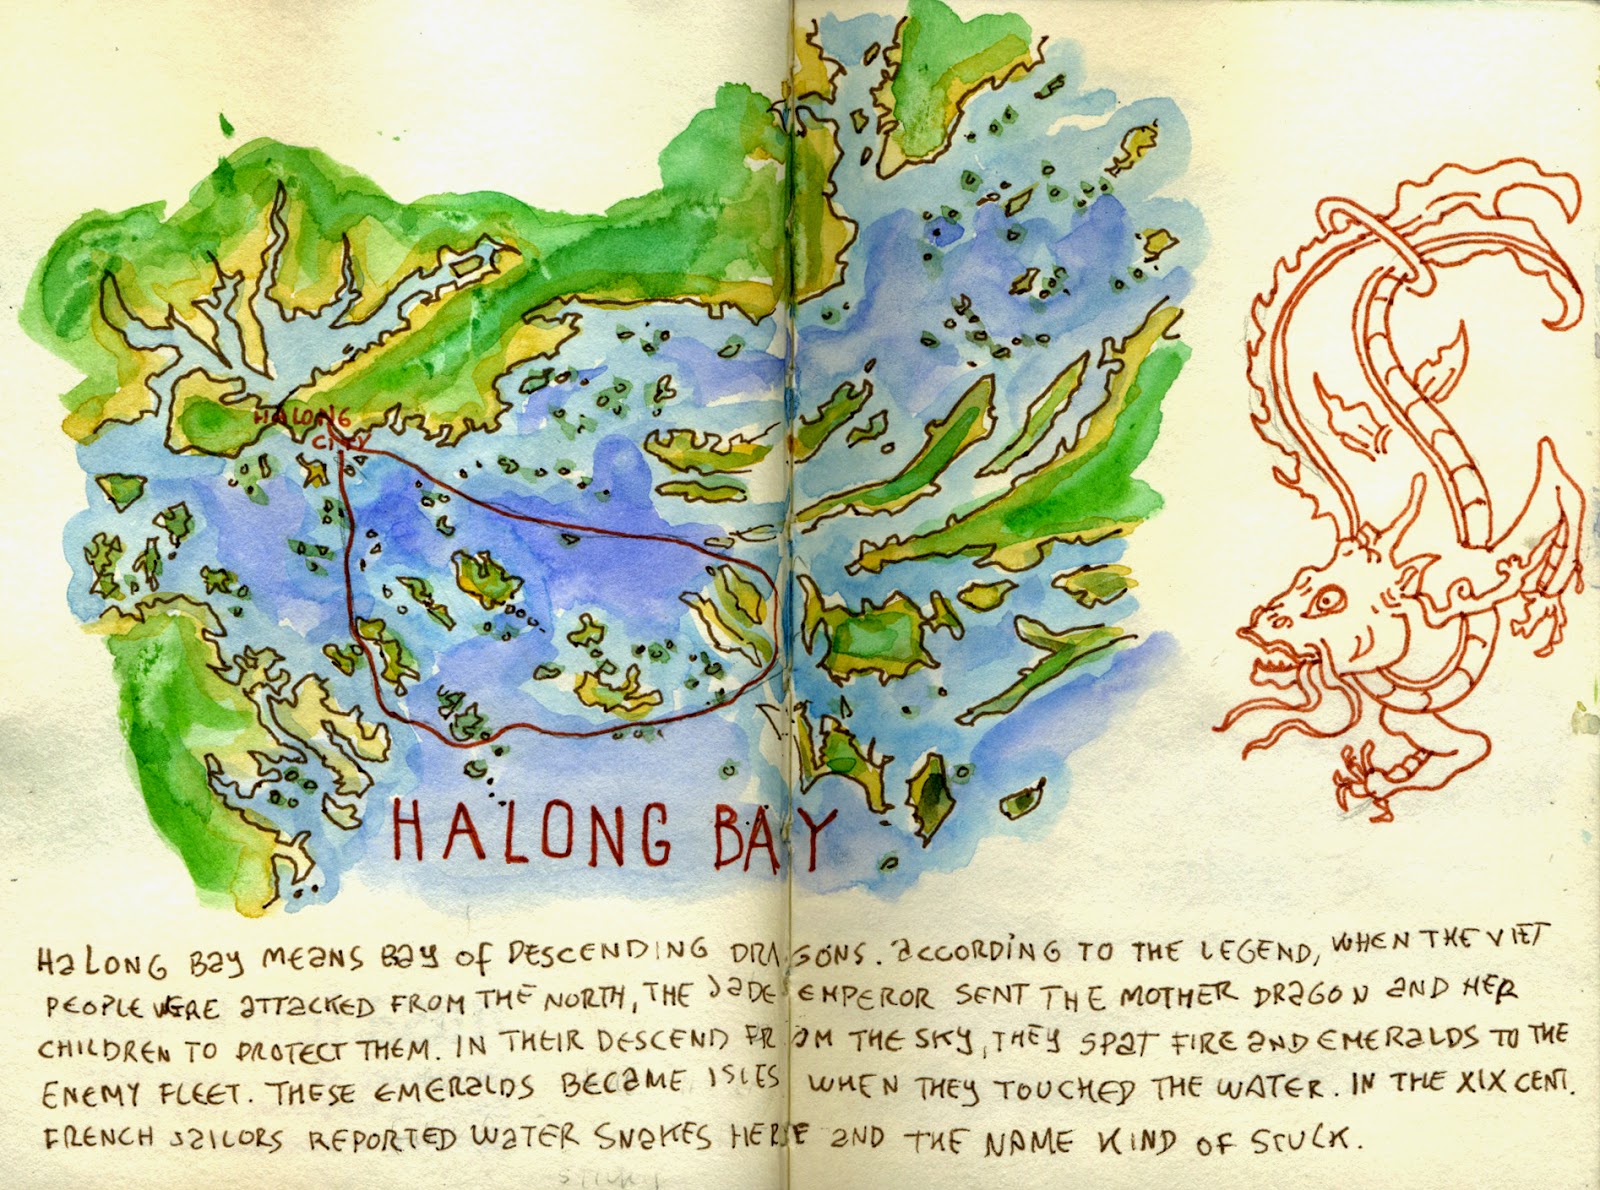 HALONG
CITY
HALONG BAY
HALONG BAY MEANS BAY OF DESCENDING DRAGONS. ACCORDING TO THE LEGEND, WHEN THE VIET
PEOPLE WERE ATTACKED FROM THE NORTH, THE JADE EMPEROR SENT THE MOTHER DRAGON AND HER
CHILDREN TO PROTECT THEM. IN THEIR DESCEND FROM THE SKY, THEY SPAT FIRE AND EMERALDS TO THE
ENEMY FLEET. THESE EMERALDS BECAME ISLES WHEN THEY TOUCHED THE WATER. IN THE XIX CENT.
FRENCH SAILORS REPORTED WATER SNAKES HERE AND THE NAME KIND OF STUCK.